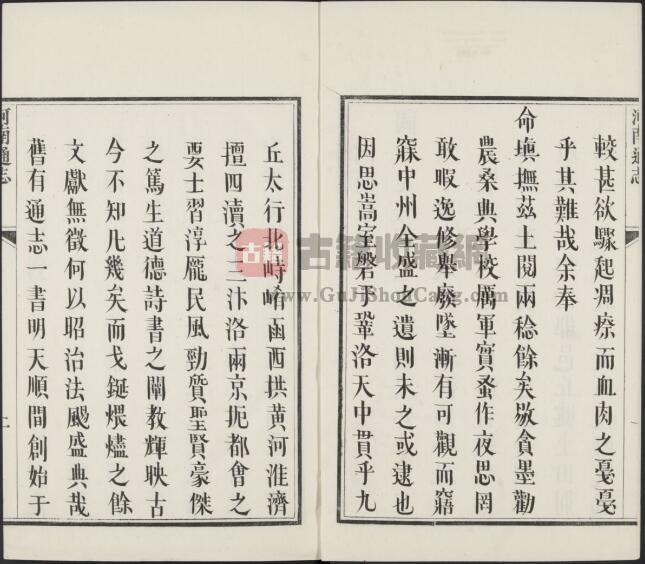 河南通志
較甚欲驟起凋瘵而血肉之戞戞
乎其難哉余奉
命填撫茲土閱兩稔餘矣敭貪墨勸
農桑典學校厲軍實蚤作夜思罔
敢暇逸修舉廢墜漸有可觀而竊
寐中州全盛之遺則未之或逮也
因思嵩室磐乎鞏洛天中貫乎九
丘太行北峙崤函西拱黃河淮濟
擅四瀆之三汴洛兩京扼都會之
要士習淳龐民風勁質聖賢豪傑
之篤生道德詩書之闡教輝映古
今不知凡幾矣而戈鋋煨燼之餘
文獻無徵何以昭治法颺盛典哉
舊有通志一書明天順間創始于
河南通志
古籍收藏網
www.GuJiShouCang.com